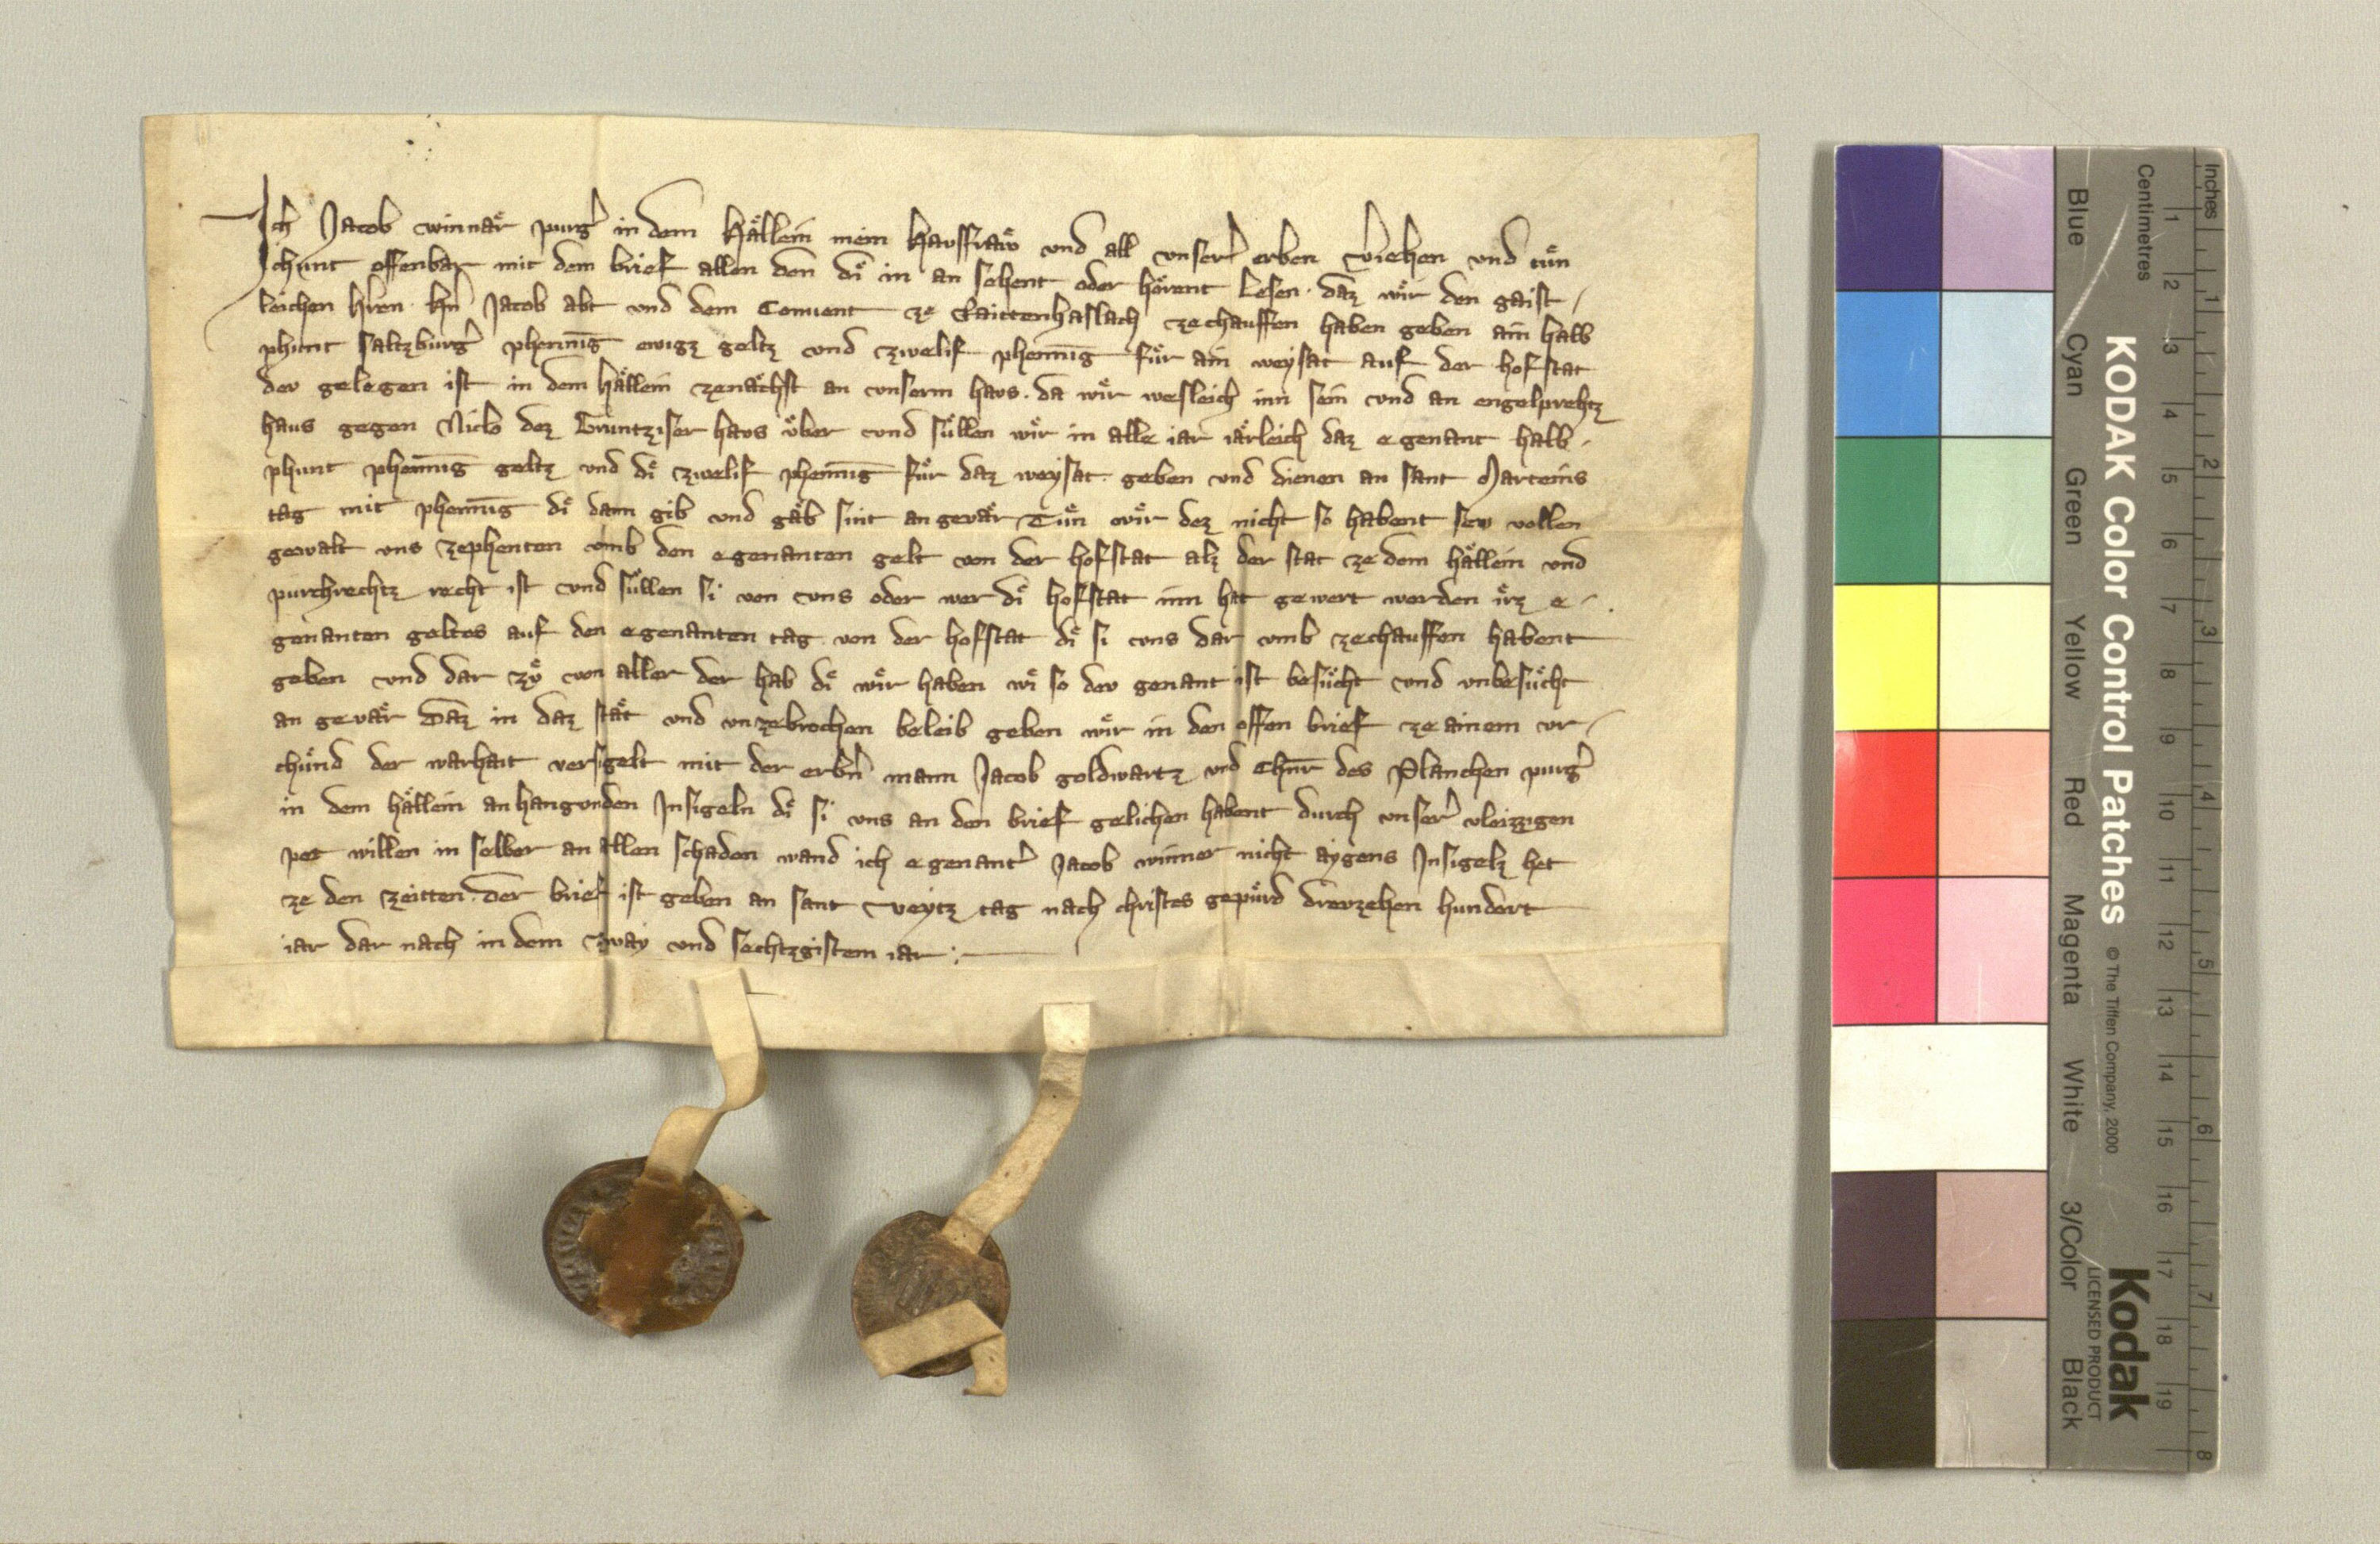 Ich Jacob winnaͤr purg̾ in dem Haͤllein mein Hausfraw vnd all vnser̾ erben v̾iehen vnd tuͤn
chunt offenbar mit dem brief allen den diͤ in an sehent oder hoͤrent lesen · daz wiͤr den gaist-
leichen h̾ren · h̾n Jacob abt vnd dem Conuent ze Raittenhaslach zechauffen haben geben ain halb
phunt saltzburg̾ phenni̅g ewigz geltz vnd zwelif phenni̅g fuͤr ain weysat auf der hofstat
dev gelegen ist in dem haͤllein zenaͤchst an vnserm haus · da wiͤr wesleich inn sein vnd an engelprehtz
haus gegen Niclo dez Gruntziser haus uͤber vnd suͤllen wiͤr in alle iar iaͤrleich daz egenant halb-
phunt phenni̅g geltz vnd diͤ zwelif phenni̅g fuͤr daz weysat geben vnd dienen an sant Marteins
tag mit phenni̅g diͤ dann gib vnd gaͤb sint an gevaͤr Tuͤn wiͤr dez nicht so habent sew vollen
gewalt vns zephenten vmb den egenanten gelt von der hofstat alz der stat ze dem haͤllein vnd
purchrechtz recht ist vnd suͤllen si von vns oder wer diͤ hofstat inn hat gewert werden iͤrz e-
genanten geltes auf den egenanten tag von der hofstat diͤ si vns dar vmb zechauffen habent
geben vnd dar zuͤ von aller der hab diͤ wiͤr haben wiͤ so dev genant ist besuͤcht vnd vnbesuͤcht
an gevaͤr Daz in daz staͤt vnd vnzebrochen beleib geben wiͤr in den offen brief ze ainem vr-
chuͤnd der warhait versigelt mit der erb̾n mann Jacob goldwartz vnd Chu̅r des Planchen purg̾
in dem haͤllein anhangunden Insigeln diͤ si vns an den brief gelichen habent durch vnser̾ vleizzigen
pet willen in selber an allen schaden wand ich egenant̾ Jacob winner nicht aygens Insigelz het
ze den zeitten · Der brief ist geben an sant Veytz tag nach christes gepuͤrd drevzehen hundert
iar dar nach in dem zway vnd sechtzgistem iar
KODAK Color Control Patches © The Tiffen Company, 2000
Kodak
LICENSED PRODUCT
Blue Cyan Green Yellow Red Magenta White 3/Color Black
Centimetres 1 2 3 4 5 6 7 8 9 10 11 12 13 14 15 16 17 18 19
Inches 1 2 3 4 5 6 7 8